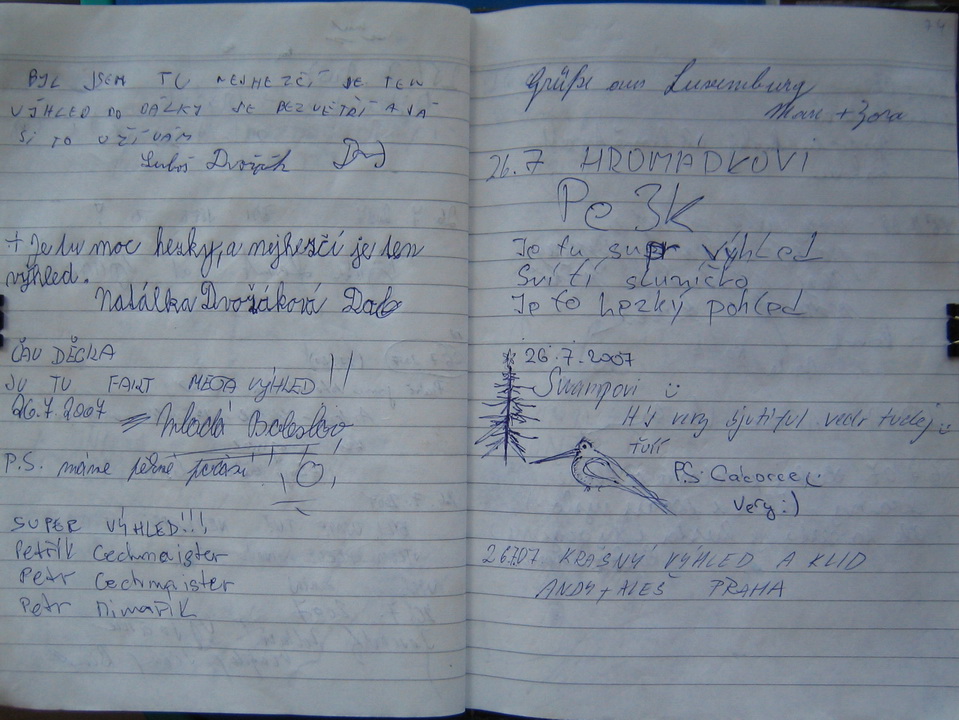 BYL JSEM TU NEJHEZČÍ JE TEN
VÝHLED DO DÁLKY JE BEZVĚTŘÍ A JÁ
SI TO UŽÍVÁM
Luboš Dvořák
+ Je tu moc hezky, a nejhezčí je ten
výhled.
Natálka Dvořáková
ČAU DĚCKA
JE TU FAJNT MEGA VÝHLED!!
26.7.2007 Mladá Boleslav
P.S. máme pěkné počasí!!
SUPER VÝHLED!!!
Petřík Cechmajster
Petr Cechmajster
Petr
74
Grüße aus Luxemburg
Marc + Zora
26.7 HROMÁDKOVI
Je tu supr výhled
Svítí sluníčko
Je to hezký pohled
26.7.2007
Swampovi :)
It's very bjutiful vedr tudej :)
P.S.
very :)
26.7.07 KRASNÝ VÝHLED A KLID
ANDY + ALEŠ PRAHA